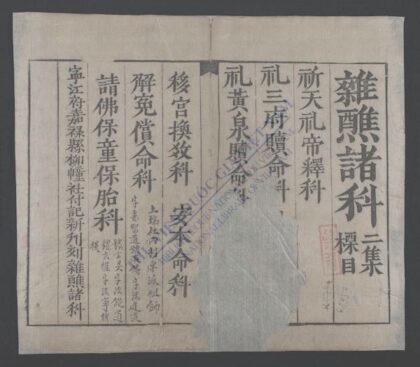 雜醮諸科 二集標目
祈天礼帝釋科
礼三府贖命科
礼黃泉贖命科
移宮換数科 安本命科
解冤償命科
請佛保童保胎科
寧江府嘉祿縣柳幢社付記新刊刻雜醮諸科